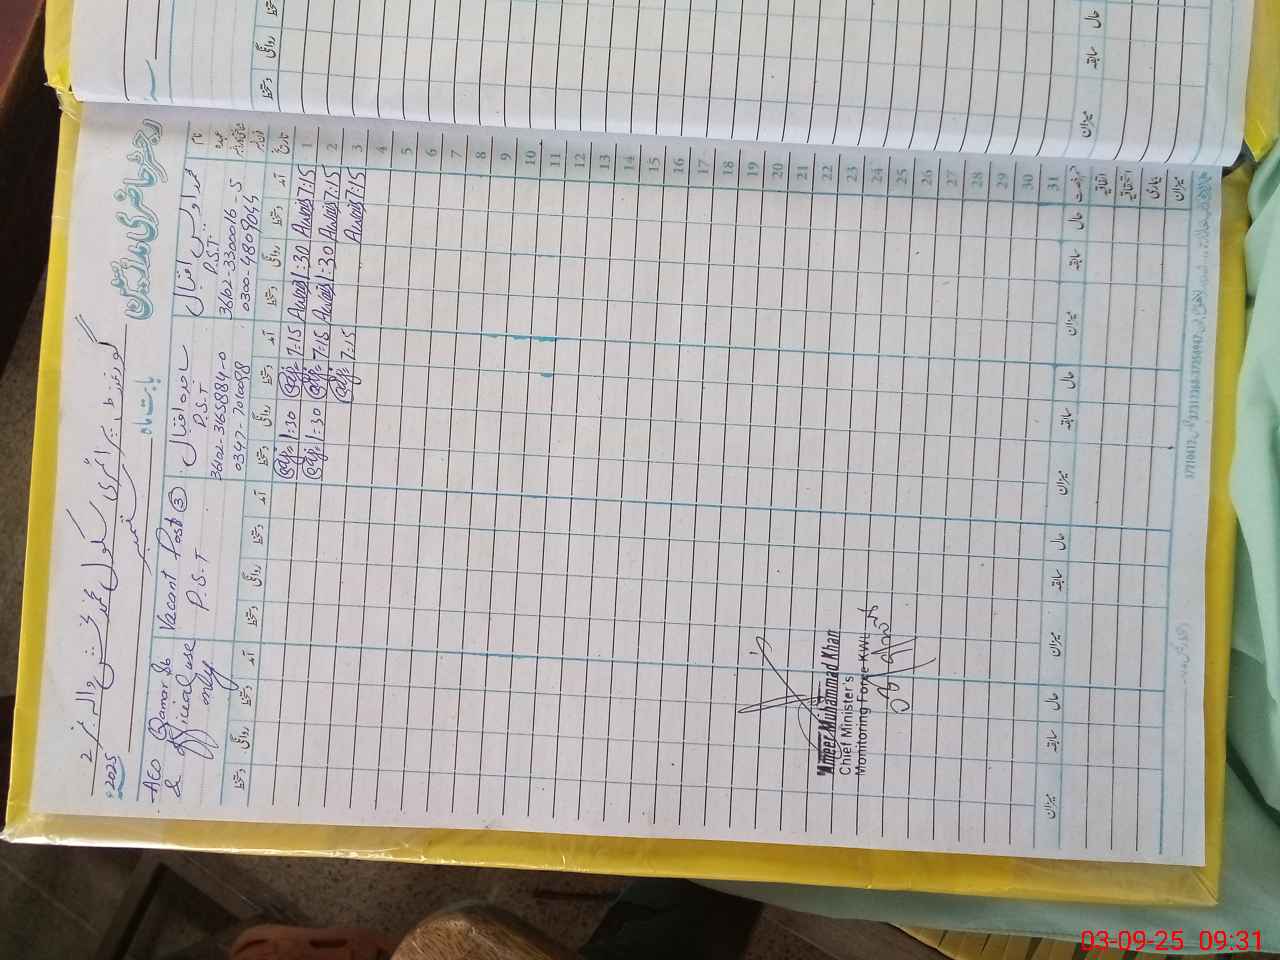 رجسٹر حاضری مدرسین
بابت ماہ
گورنمنٹ پرائمری سکول
2025ء
نام
محمد اویس اقبال
ساجدہ اقبال
Vacant Post ③
AEO Qamar Sb
& official use
only
عہدہ
P.S.T
P.S.T
P.S.T
36102-3300016-5
36102-3165884-0
0300-4809044
0347-7010098
تاریخ آمد دستخط روانگی دستخط آمد دستخط روانگی دستخط آمد دستخط روانگی دستخط آمد دستخط روانگی دستخط
1 7:15 Awais 1:30 Awais 7:15 1:30
2 7:15 Awais 1:30 Awais 7:15 1:30
3 7:15 Awais 7:15
4
5
6
7
8
9
10
11
12
13
14
15
16
17
18
19
20
21
22
23
24
25
26
27
28
29
30
31
Ameer Muhammad Khan
Chief Minister's
Monitoring Force KWL
حال سابقہ میزان حال سابقہ میزان حال سابقہ میزان حال سابقہ میزان
اتفاقیہ
استحقاقیہ
بیماری
میزان
03-09-25 09:31